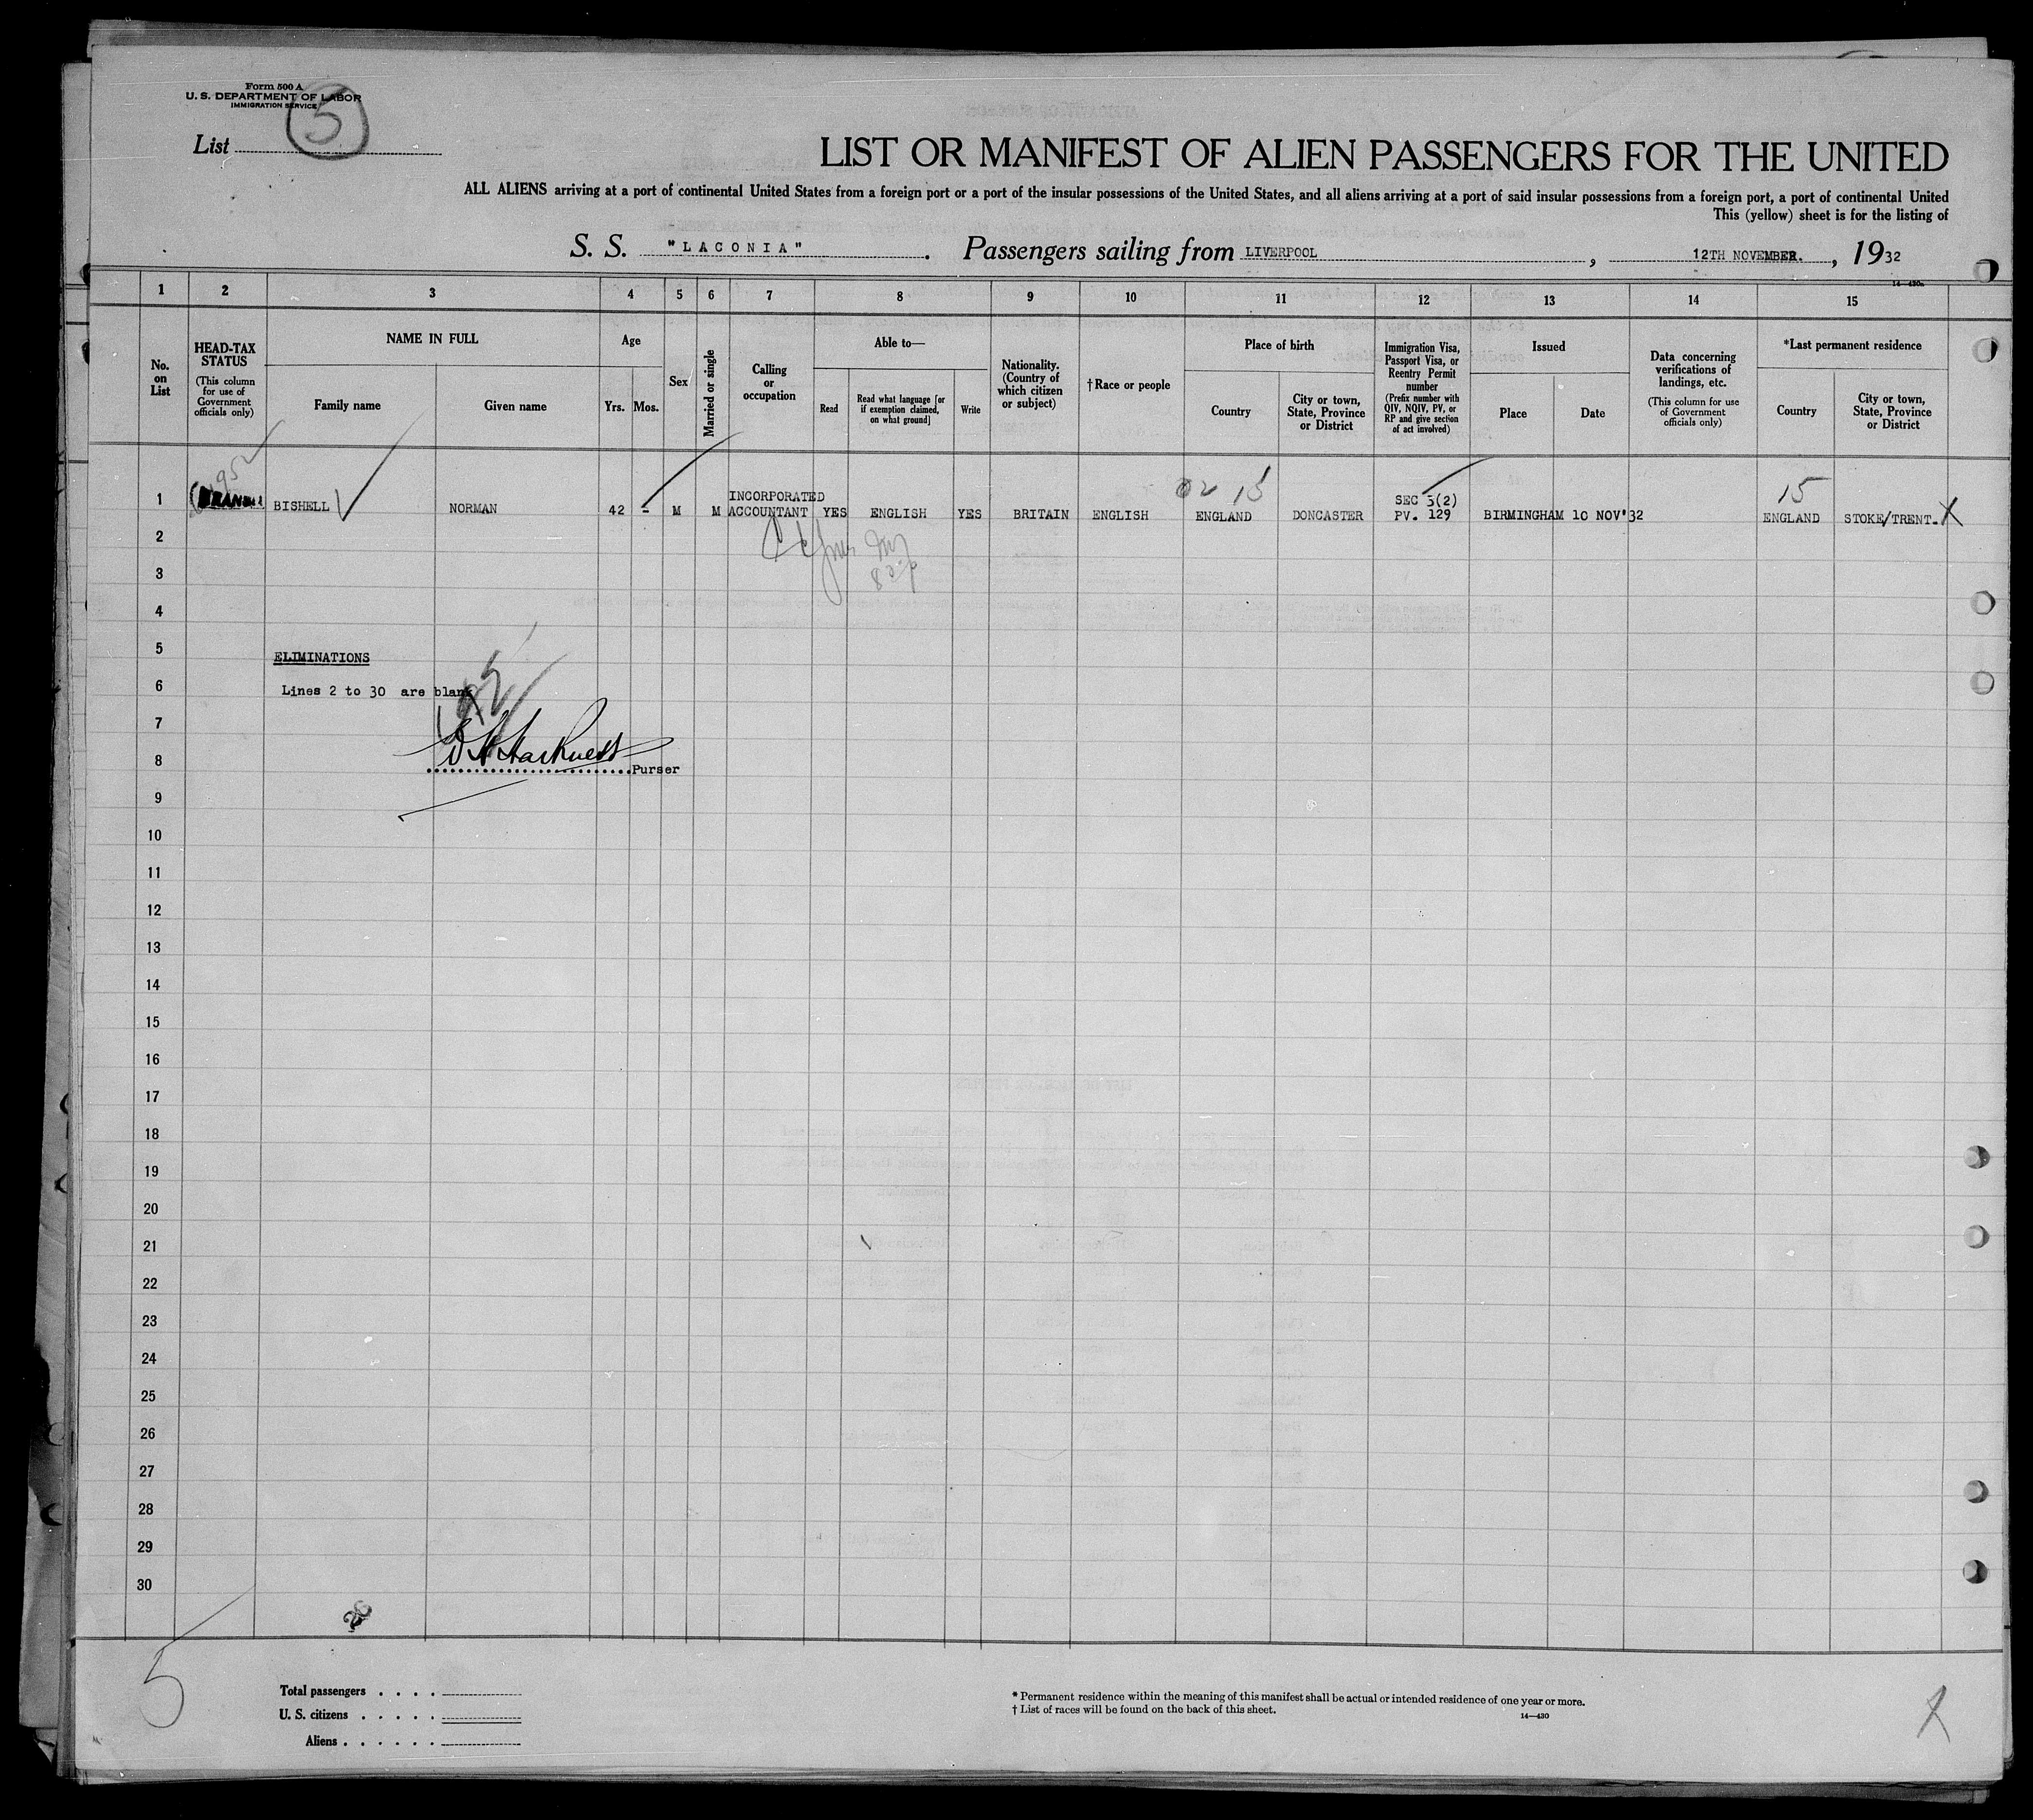 Form 500 A
U. S. DEPARTMENT OF LABOR
IMMIGRATION SERVICE
5
List
LIST OR MANIFEST OF ALIEN PASSENGERS FOR THE UNITED
ALL ALIENS arriving at a port of continental United States from a foreign port or a port of the insular possessions of the United States, and all aliens arriving at a port of said insular possessions from a foreign port, a port of continental United
This (yellow) sheet is for the listing of
S. S. "LACONIA". Passengers sailing from LIVERPOOL, 12TH NOVEMBER., 1932
14—430a
1 2 3 4 5 6 7 8 9 10 11 12 13 14 15
No. on List
HEAD-TAX STATUS
(This column for use of Government officials only)
NAME IN FULL
Family name
Given name
Age
Yrs.
Mos.
Sex
Married or single
Calling or occupation
Able to—
Read
Read what language [or if exemption claimed, on what ground]
Write
Nationality. (Country of which citizen or subject)
†Race or people
Place of birth
Country
City or town, State, Province or District
Immigration Visa, Passport Visa, or Reentry Permit number
(Prefix number with QIV, NQIV, PV, or RP and give section of act involved)
Issued
Place
Date
Data concerning verifications of landings, etc.
(This column for use of Government officials only)
*Last permanent residence
Country
City or town, State, Province or District
02 15
15
INCORPORATED
SEC 3(2)
1 BISHELL NORMAN 42 - M M ACCOUNTANT YES ENGLISH YES BRITAIN ENGLISH ENGLAND DONCASTER PV. 129 BIRMINGHAM 10 NOV'32 ENGLAND STOKE/TRENT. X
2
3
4
5
ELIMINATIONS
6
Lines 2 to 30 are blank
7
8
Purser
9
10
11
12
13
14
15
16
17
18
19
20
21
22
23
24
25
26
27
28
29
30
5
Total passengers . . . .
U. S. citizens . . . . .
Aliens . . . . . .
* Permanent residence within the meaning of this manifest shall be actual or intended residence of one year or more.
† List of races will be found on the back of this sheet.
14—430
X